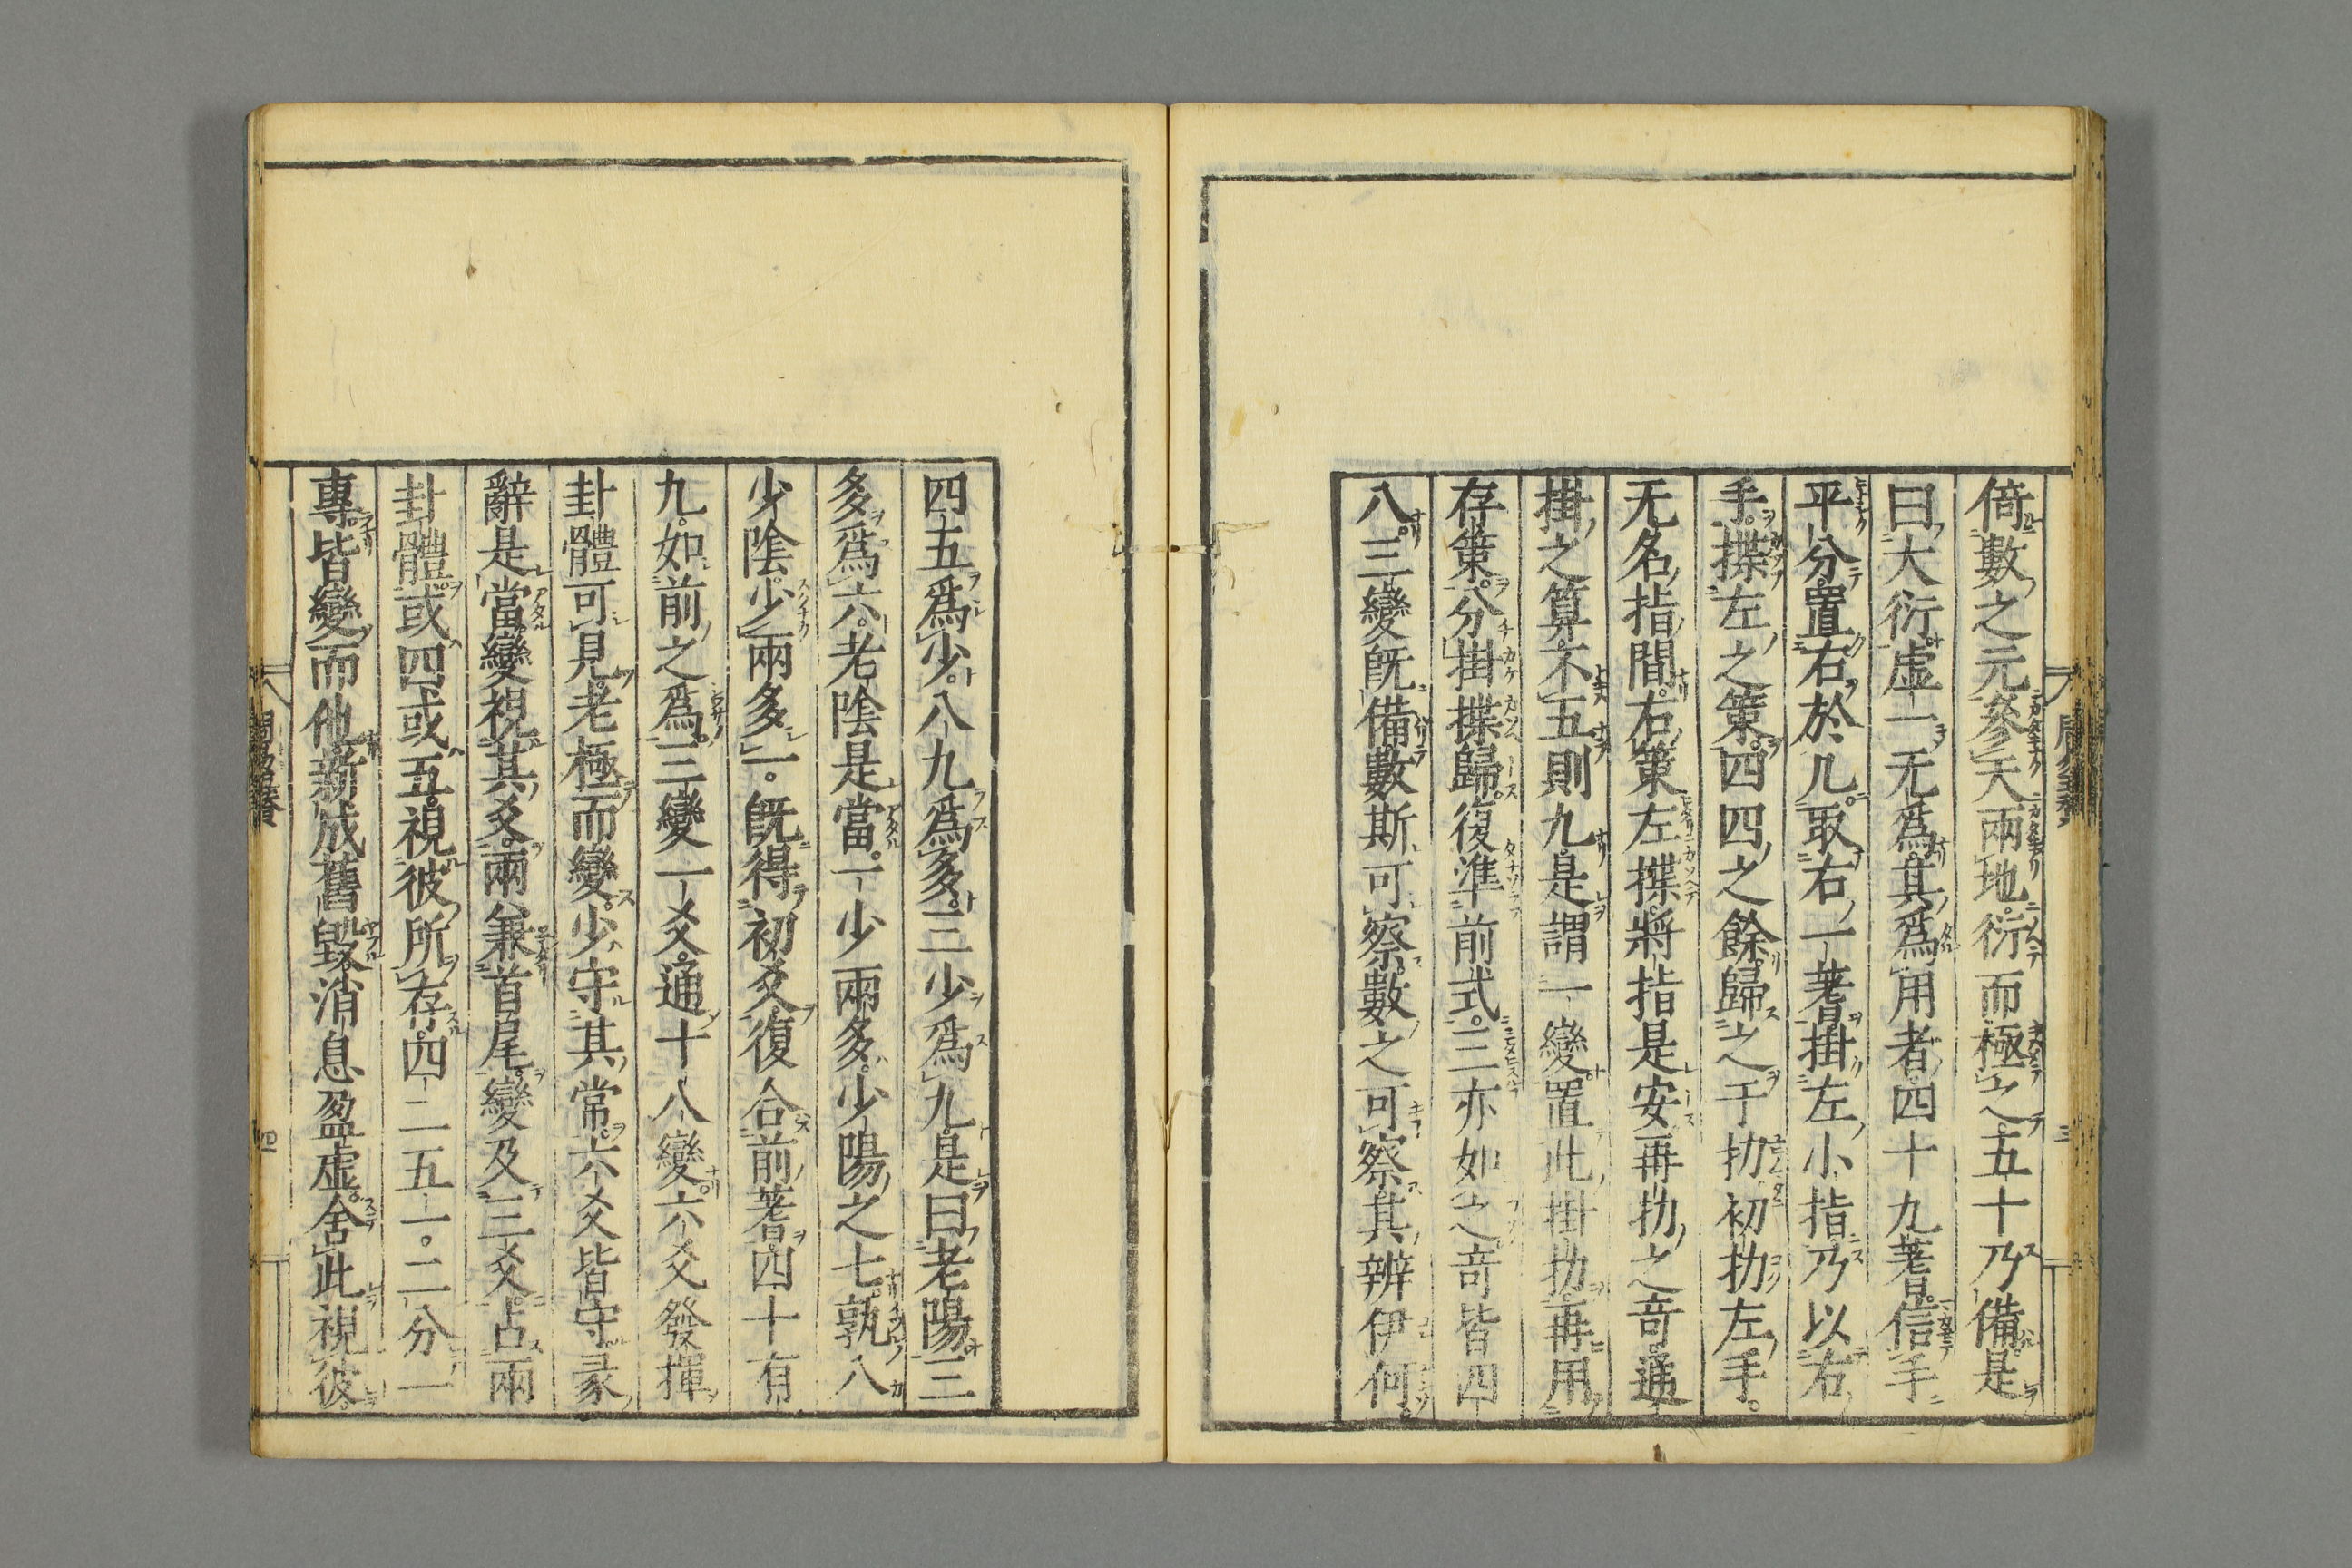 倚數之元參天兩地衍而極之五十乃備是
曰大衍虛一无爲其爲用者四十九蓍信手
平分置右於几取右一蓍掛左小指乃以右
手揲左之策四四之餘歸之于扐初扐左手。
无名指間右策左揲將指是安再扐之奇通
掛之算不五則九是謂一變置此掛扐再用
存策分掛揲歸復準前式三亦如之奇皆四
八三變旣備數斯可察數之可察其辨伊何。
四五爲少八九爲多三少爲九是曰老陽三
多爲六老陰是當一少兩多少陽之七孰八
少陰少兩多一。旣得初爻復合前蓍四十有
九如前之爲三變一爻通十八變六爻發揮
卦體可見老極而變少守其常六爻皆守彖
辭是當變視其爻兩兼首尾變及三爻占兩
卦體或四或五視彼所存四二五一。二分一
專皆變而他新成舊毀消息盈虛舍此視彼。
四